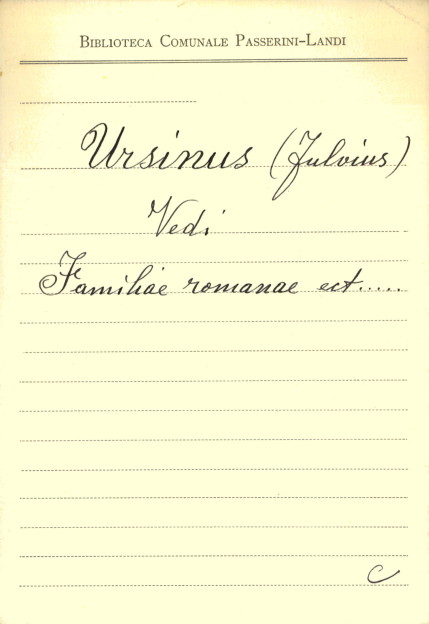 BIBLIOTECA COMUNALE PASSERINI-LANDI
Ursinus (Fulvius)
Vedi
Familiae romanae ect.....
C